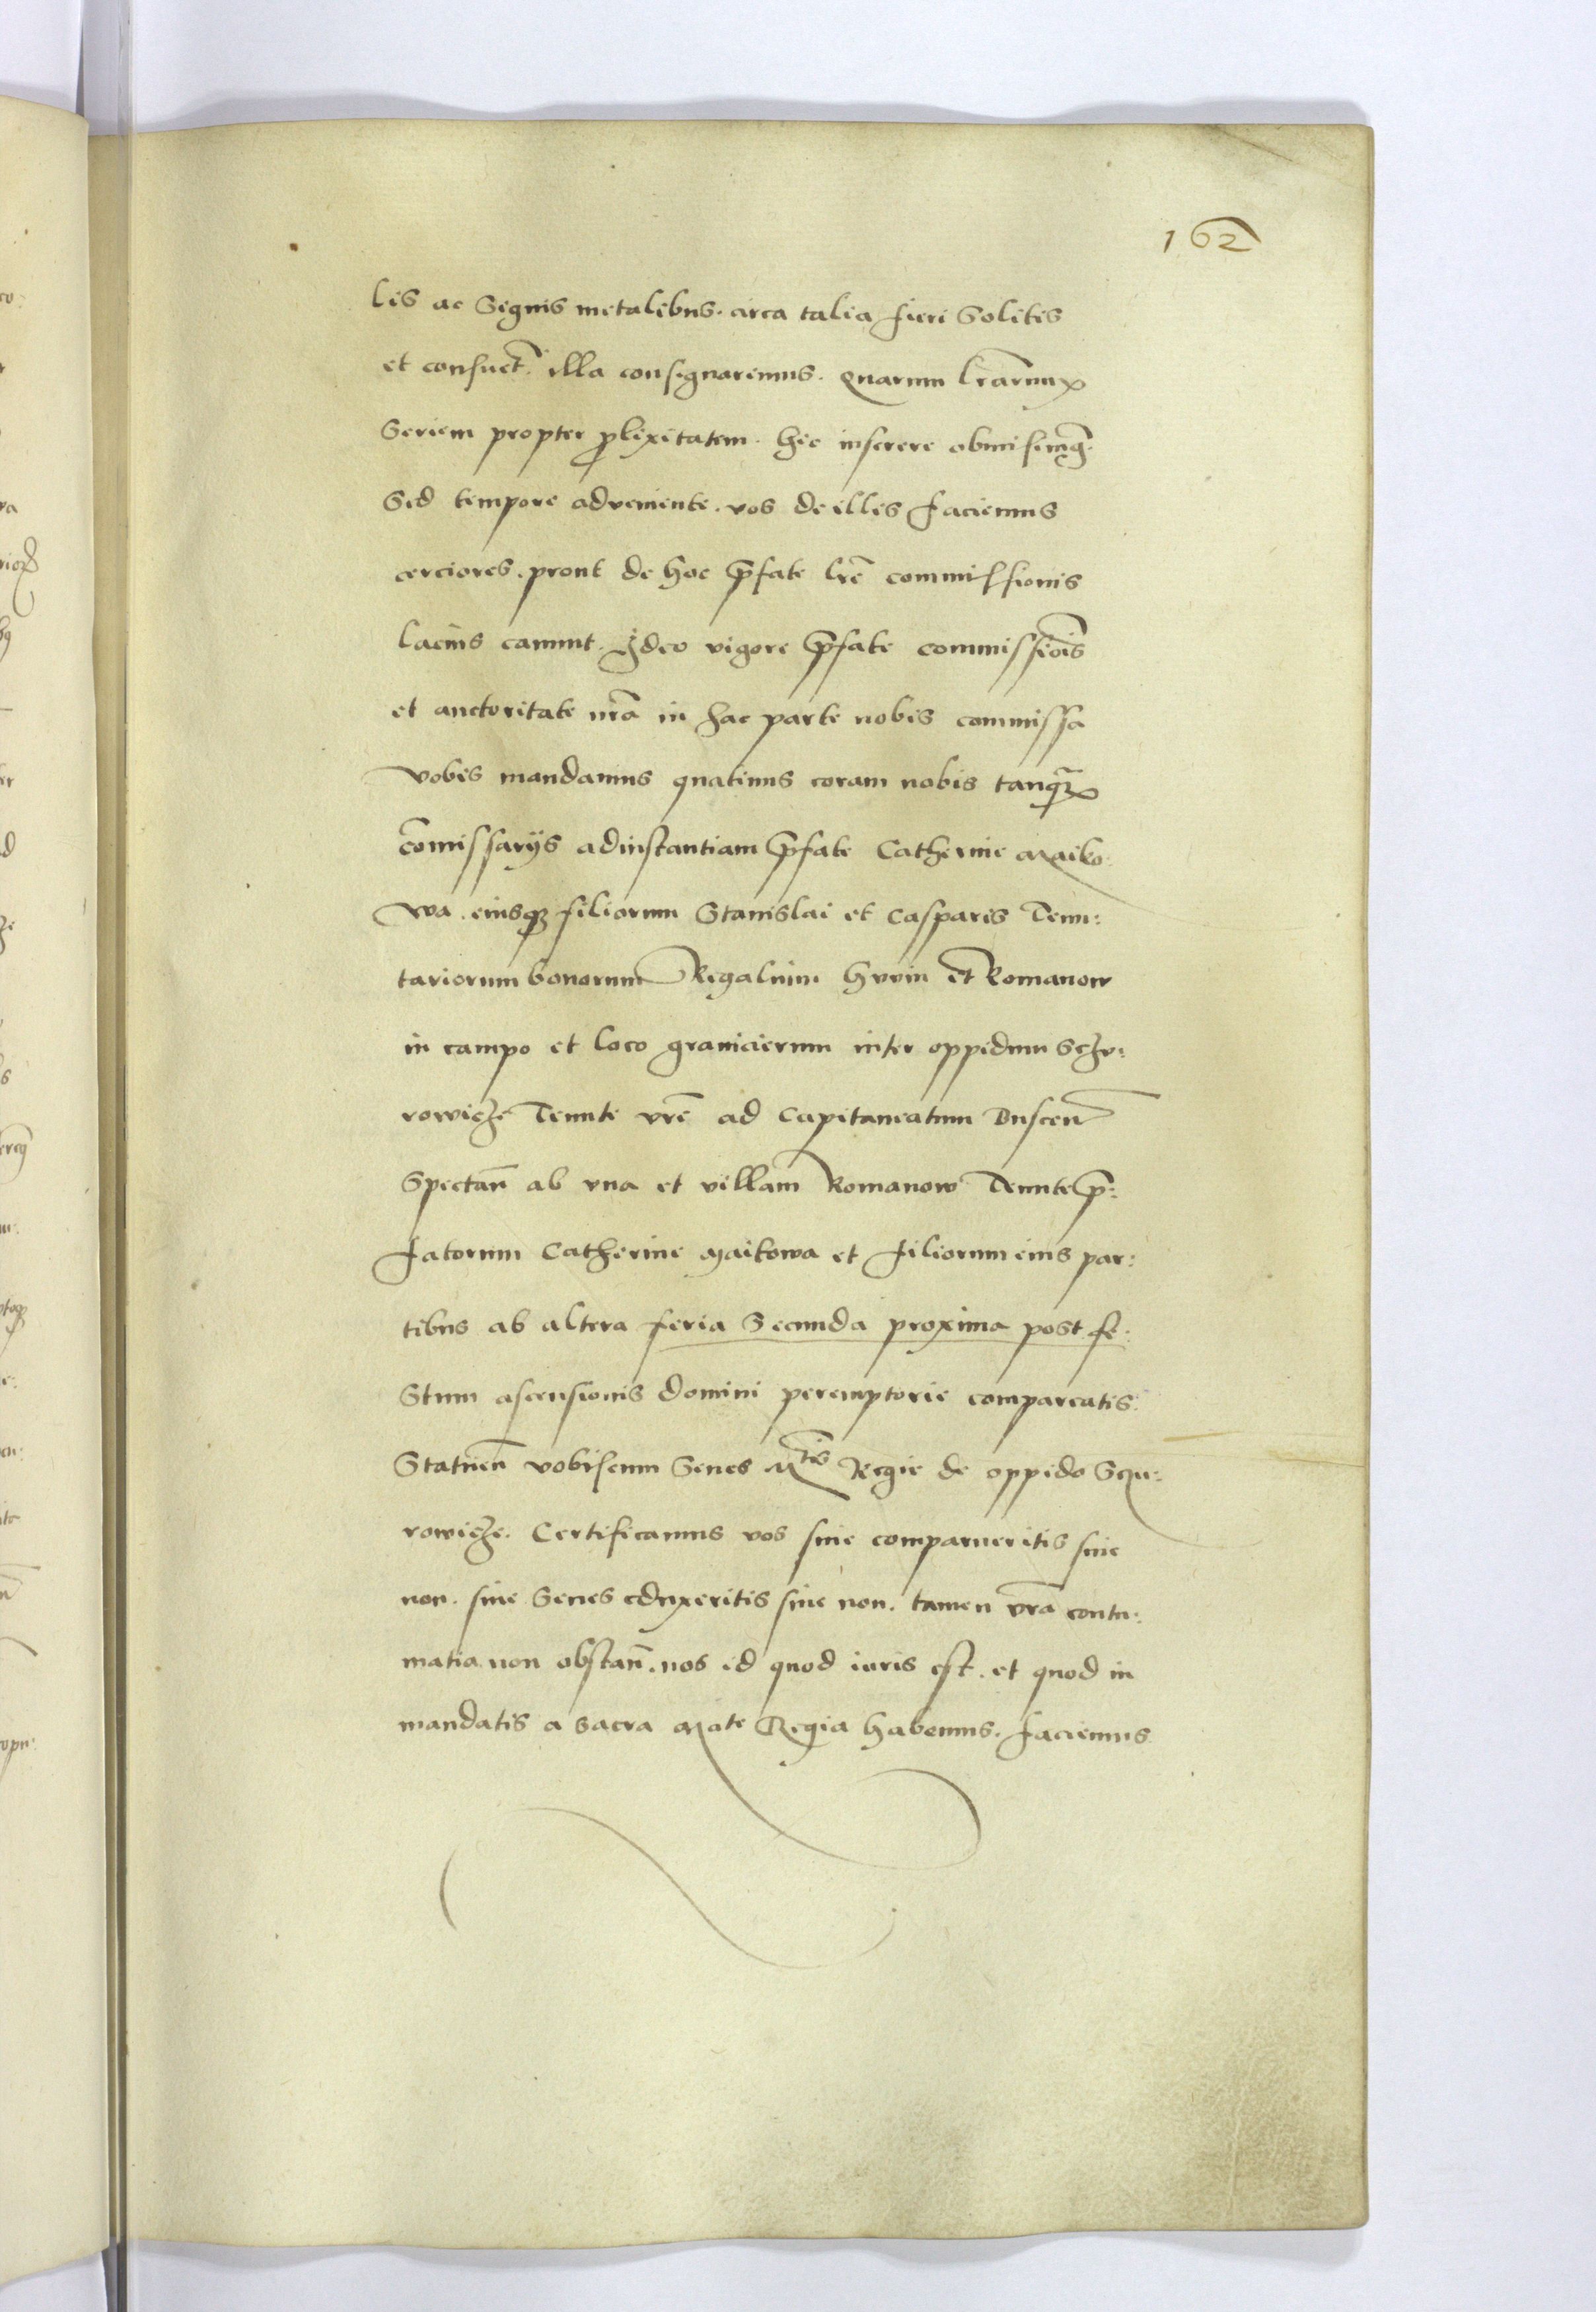 162
lis ac Signis metalibus. circa talia fieri Solitis
et consuet̄. illa consignaremus. Quarum l̄rarum
Seriem propter ꝓlixitatem. hic inserere obmisimꝰ.
Sed tempore adveniente. vos de illis faciemus
cerciores. prout de hoc p̄fate l̄re commissionis
lacius canunt. Ideo vigore p̄fate commissiōis
et auctoritate n̄ra in hac parte nobis commissa
vobis mandamus quatinus coram nobis tanq̄
cōmissarijs ad instantiam p̄fate Catherine Maiko:
wa. eiusqꝫ filiorum Stanislai et Casparis Tenu:
tariorum bonorum Regalium hvvin et Romanow
in campo et loco granicierum inter oppidum Sczv:
rowicze Tenute v̄re ad Capitaneatum Buscen̄
Spectan̄ ab vna et villam Romanow Tenute p̄:
fatorum Catherine Maikowa et filiorum eius par:
tibus ab altera feria Secunda proxima post fe:
Stum ascensionis domini peremptorie compareatis.
Statuen̄ vobiscum Senes Mtis Regie de oppido Sczu:
rowicze. Certificamus vos siue comparueritis siue
non. siue Senes eduxeritis siue non. tamen v̄ra contu:
matia non obstan̄. nos id quod iuris est. et quod in
mandatis a Sacra Mate Regia habemus. faciemus